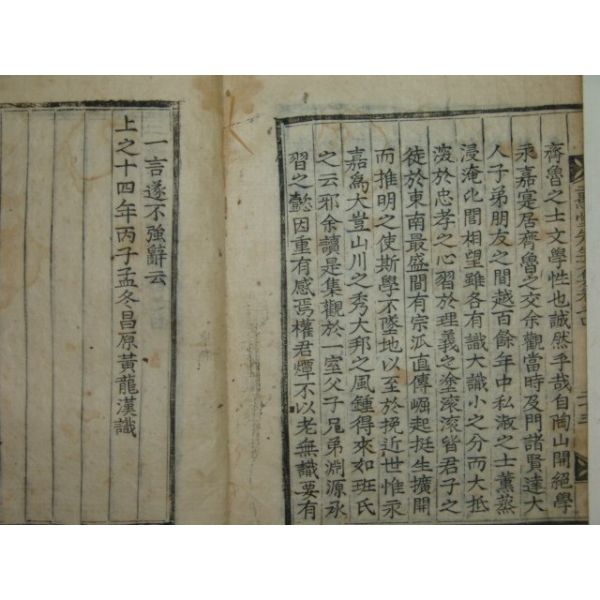 齊魯之士文學性也誠然乎哉自陶山開絕學
永嘉寔居齊魯之交余觀當時及門諸賢達大
人子弟朋友之間越百餘年中私淑之士薰蒸
浸淹也間相望雖各有識大識小之分而大抵
浚於忠孝之心習於理義之塗滾滾皆君子之
徒於東南最盛間有宗派直傳崛起挺生擴開
而推明之使斯學不墜地以至於挽近世惟永
嘉爲大豈山川之秀大邦之風鍾得來如班氏
之云邪余讀是集觀於一室父子兄弟淵源承
習之懿因重有感焉權君㷮不以老無識要有
一言遂不強辭云
上之十四年丙子孟冬昌原黃龍漢識